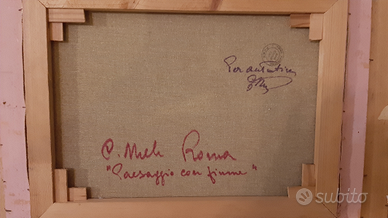 Per autentica
P. Mele Roma
"Paesaggio con fiume"
subito